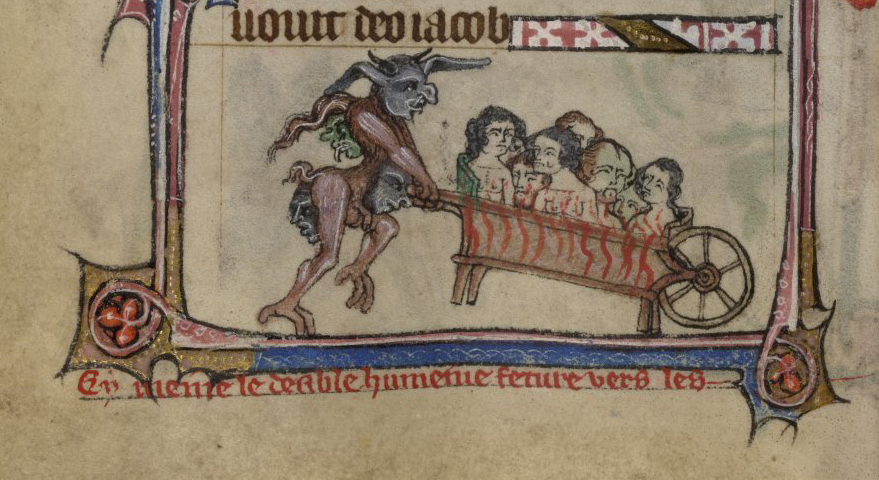 uouit deo iacob
Cy meine le deable humeine feture vers les